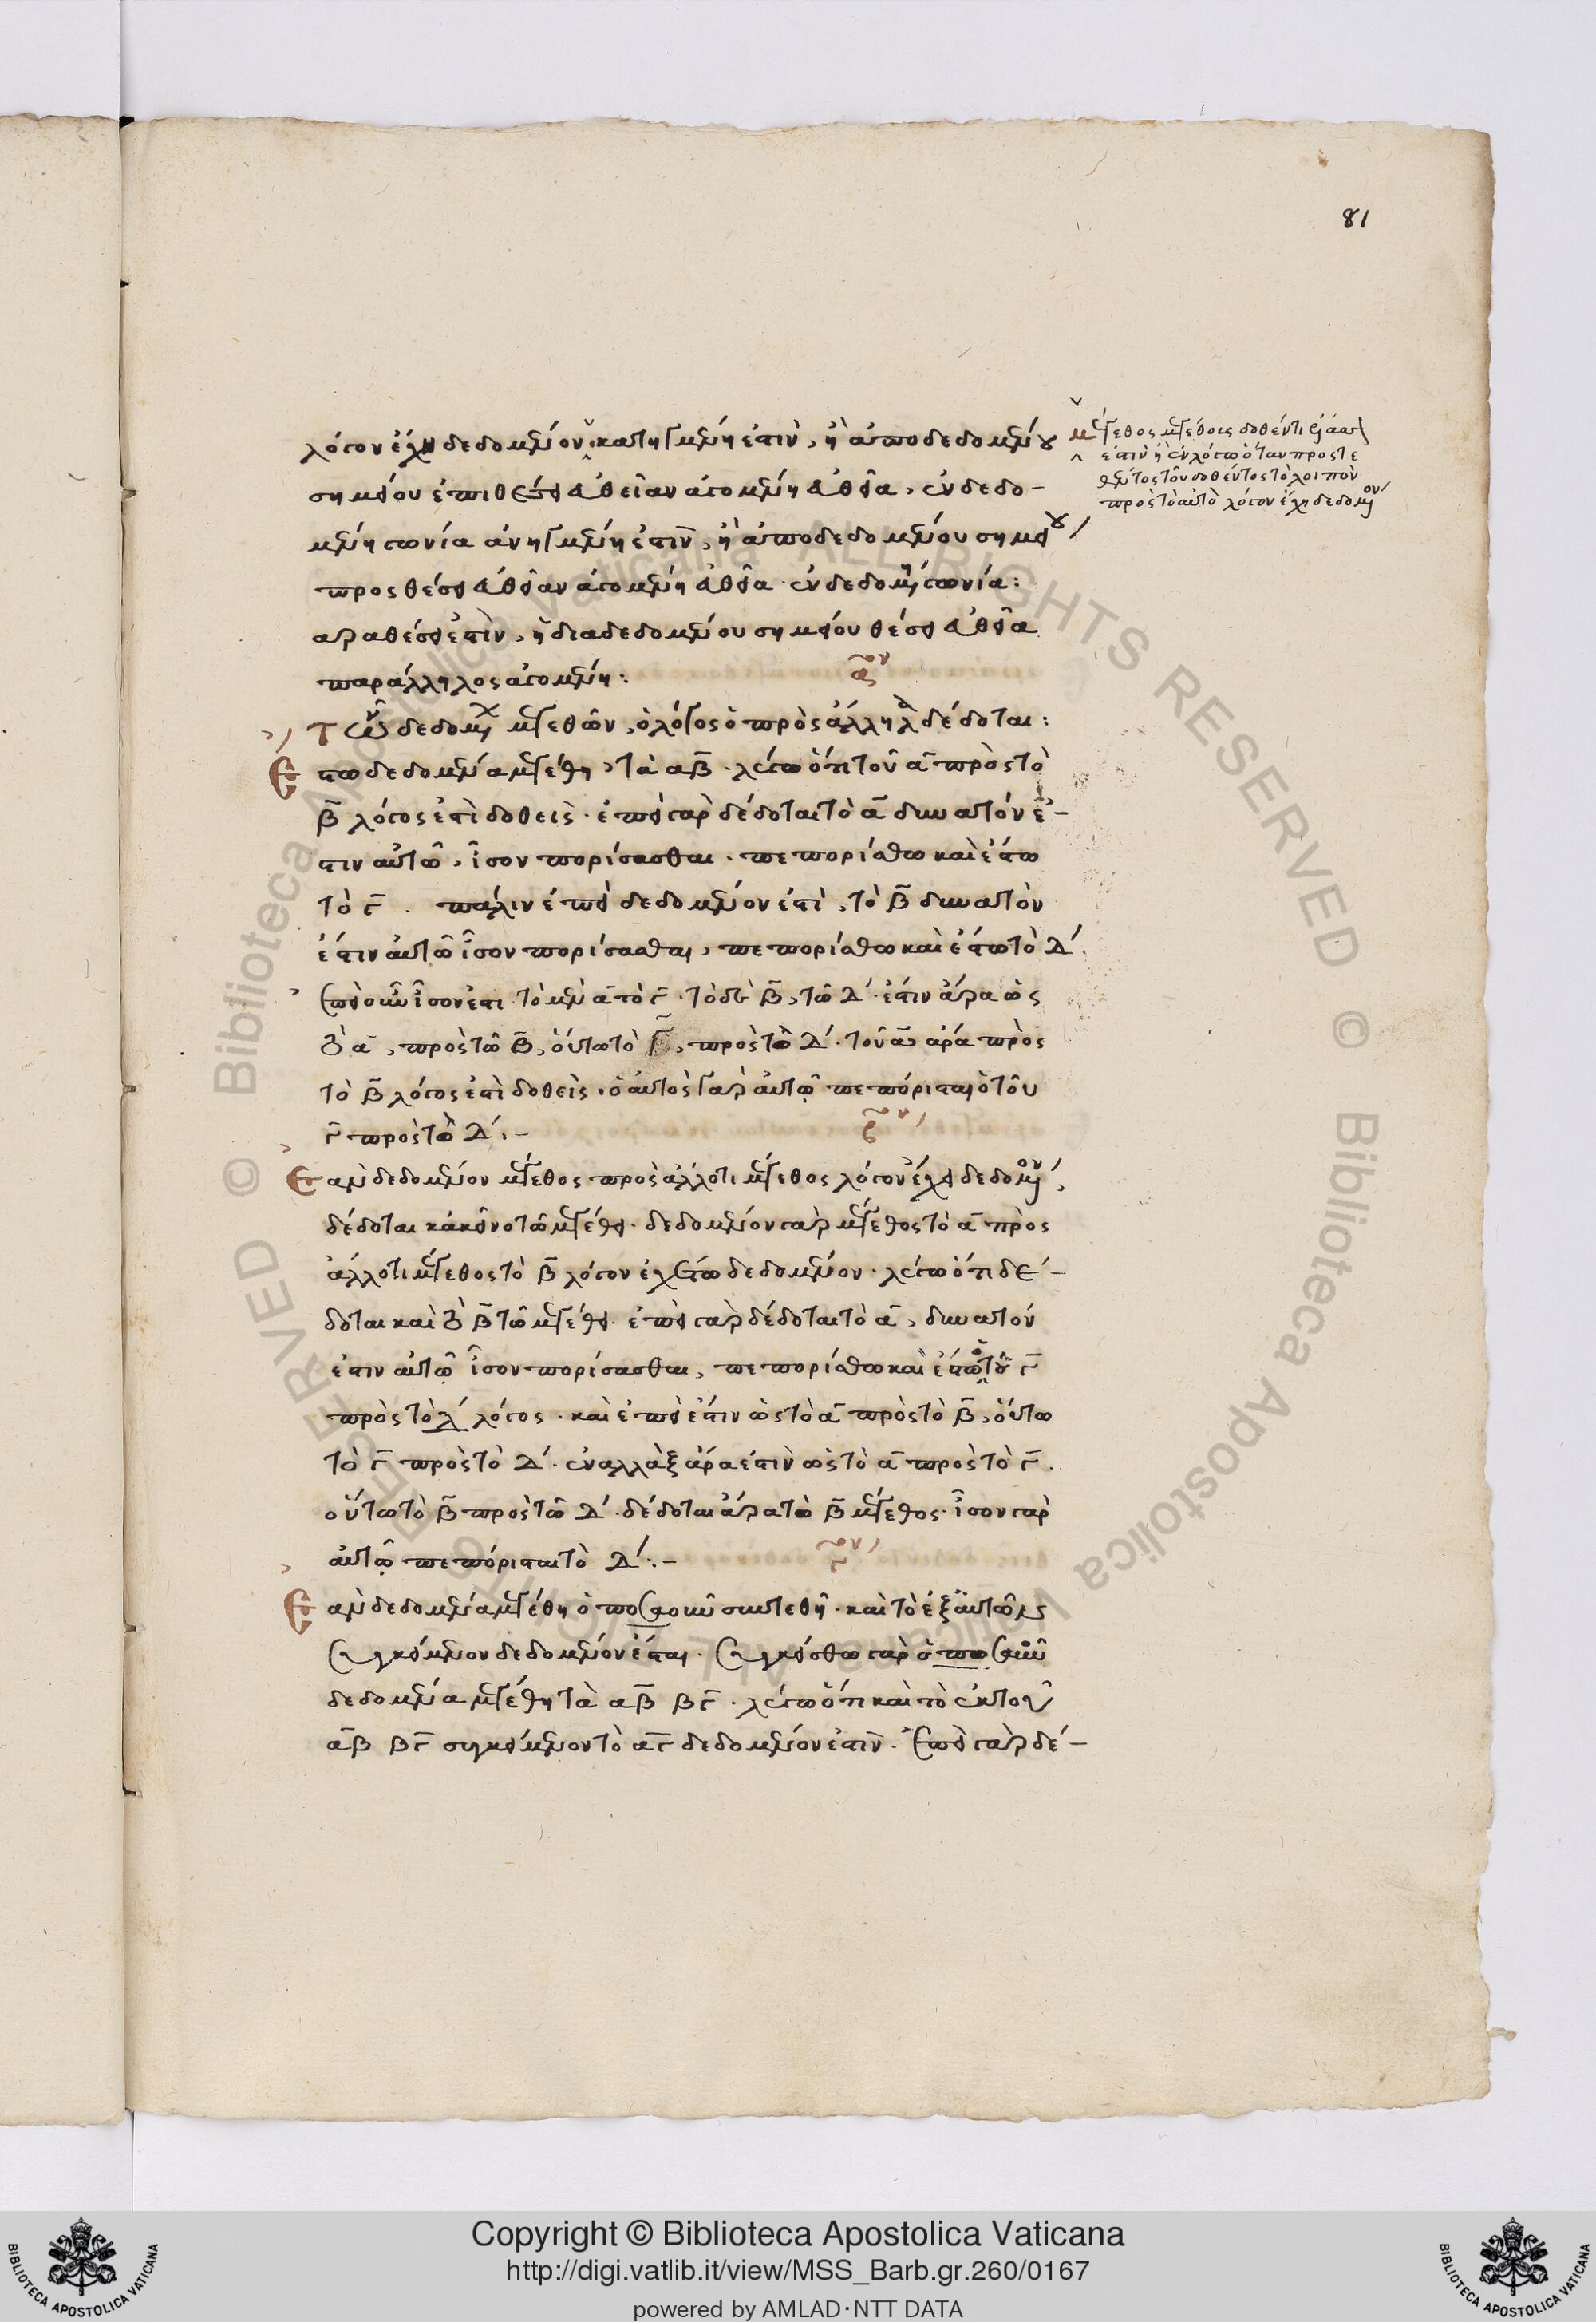 81
λόγον ἔχῃ δεδομένον. κατηγμένη ἐστὶν, ἡ ἀπὸ δεδομένου
σημείου ἐπὶ θέσει εὐθεῖαν ἀγομένη εὐθεῖα, ἐν δεδο-
μένῃ γωνίᾳ ἀνηγμένη ἐστὶν, ἡ ἀπὸ δεδομένου σημείου
πρὸς θέσει εὐθεῖαν ἀγομένη εὐθεῖα ἐν δεδομένῃ γωνίᾳ:
παρὰ θέσει ἐστὶν, ἡ διὰ δεδομένου σημείου θέσει εὐθείᾳ
παράλληλος ἀγομένη:
μέγεθος μεγέθους δοθέντι μεῖζόν
ἐστιν ἢ ἐν λόγω ὅταν προστε
θέντος τοῦ δοθέντος τὸ λοιπὸν
πρὸς τὸ αὐτὸ λόγον ἔχη δεδομένον
αον
Τῶν δεδομένων μεγεθῶν, ὁ λόγος ὁ πρὸς ἄλληλα δέδοται:
Ἔστω δεδομένα μεγέθη, τὰ α β. λέγω ὅτι τοῦ α πρὸς τὸ
β λόγος ἐστὶ δοθεὶς. ἐπεὶ γὰρ δέδοται τὸ α δυνατόν ἐ-
στιν αὐτῶ, ἴσον πορίσασθαι. πεπορίσθω καὶ ἔστω
τὸ γ. πάλιν ἐπεὶ δεδομένον ἐστὶ, τὸ β δυνατὸν
ἐστιν αὐτῶ ἴσον πορίσασθαι, πεπορίσθω καὶ ἔστω τὸ Δ.
Ἐπεὶ οὖν ἴσον ἐστι τὸ μὲν α τὸ γ. τὸ δὲ β, τῶ Δ. ἔστιν ἄρα ὡς
τὸ α, πρὸς τῶ β, οὕτω τὸ γ, πρὸς τὸ Δ. τοῦ α ἄρα πρὸς
τὸ β λόγος ἐστὶ δοθεὶς. ὁ αὐτὸς γὰρ αὐτῶ πεπόρισται ὁ τοῦ
γ πρὸς τὸ Δ.-
βον
Ἐὰν δεδομένον μέγεθος πρὸς ἄλλο τι μέγεθος λόγον ἔχει δεδομένον,
δέδοται κἀκεῖνο τῶ μεγέθει. δεδομένον γὰρ μέγεθος τὸ α πρὸς
ἄλλο τι μέγεθος τὸ β λόγον ἐχέτω δεδομένον. λέγω ὅτι δέ-
δοται καὶ τὸ β τῶ μεγέθει. ἐπεὶ γὰρ δέδοται τὸ α, δυνατόν
ἐστιν αὐτῶ ἴσον πορίσασθαι, πεπορίσθω καὶ ἔστω ὁ τοῦ γ
πρὸς τὸ Δ λόγος. καὶ ἐπεὶ ἐστιν ὡς τὸ α πρὸς τὸ β, οὕτω
τὸ γ πρὸς τὸ Δ. ἐναλλὰξ ἄρα ἐστὶν ὡς τὸ α πρὸς τὸ γ.
οὕτω τὸ β πρὸς τῶ Δ. δέδοται ἄρα τὸ β μέγεθος. ἴσον γὰρ
αὐτῶ πεπόρισται τὸ Δ.-
γον
Ἐὰν δεδομένα μεγέθη ὁποσαοῦν συντεθῆ. καὶ τὸ ἐξ αὐτῶν
συγκείμενον δεδομένον ἔσται. συγκείσθω γὰρ ὁποσαοῦν
δεδομένα μεγέθη τὰ αβ βγ. λέγω ὅτι καὶ τὸ ἐκ τοῦ
αβ βγ συγκείμενον τὸ αγ δεδομένον ἐστιν. Ἐπεὶ γὰρ δέ-
Copyright © Biblioteca Apostolica Vaticana
http://digi.vatlib.it/view/MSS_Barb.gr.260/0167
powered by AMLAD·NTT DATA
BIBLIOTECA APOSTOLICA VATICANA
BIBLIOTECA APOSTOLICA VATICANA
© Biblioteca Apostolica Vaticana ALL RIGHTS RESERVED © Biblioteca Apostolica Vaticana ALL RIGHTS RESERVED